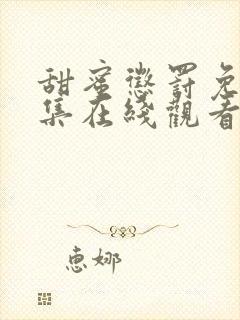 甜蜜懲罰免
集在綫觀看
惠娜